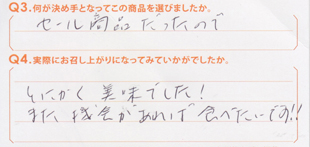 Q3.何が決め手となってこの商品を選びましたか。
セール商品だったので
Q4.実際にお召し上がりになってみていかがでしたか。
とにかく美味でした!
また機会があれば食べたいです!!